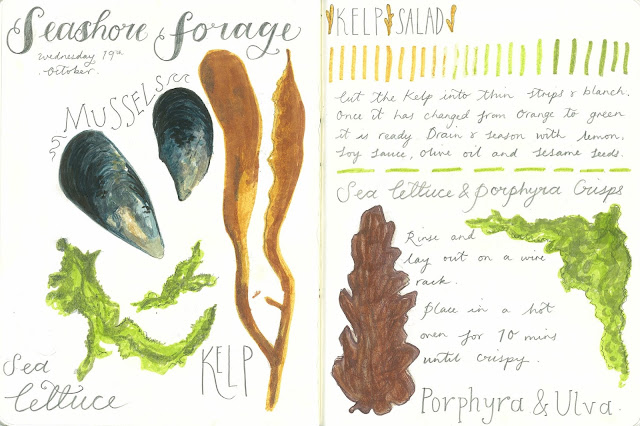 Seashore forage
Wednesday 19th
October.
MUSSELS
KELP
Sea
lettuce
KELP SALAD
Cut the Kelp into thin strips & blanch.
Once it has changed from orange to green
it is ready Drain & season with lemon,
Soy sauce, olive oil and sesame seeds.
Sea lettuce & porphyra Crisps
Rinse and
lay out on a wire
rack.
Place in a hot
oven for 10 mins
until crispy.
Porphyra & Ulva.